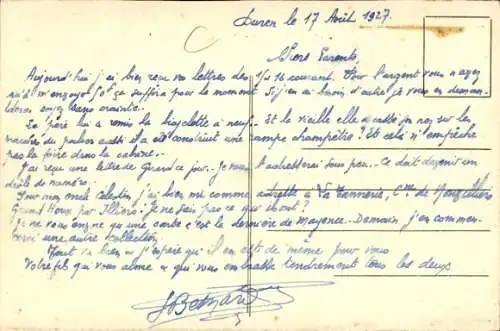 Duren le 17 Août 1927.
Chers Parents
Aujourd'hui j'ai bien reçu vos lettres des 14 et 16 courant. Pour l'argent vous n'avez
qu'à m'envoyer 50f ça suffira pour le moment Si j'en ai besoin d'autre je vous en deman-
derai soyez sans crainte..
Le père lui a remis la bicyclette à neuf.. Et la vieille elle a cassé son nez sur les
marches du perron aussi il a construit une rampe champêtre! Et cela n'empêche
pas la foire dans la cabane..
J'ai reçu une lettre de Grand ce jour. Je vous l'achetterai sous peu.. Ce doit devenir un
drôle de numéro.
Pour mon oncle Célestin j'ai bien mis comme adresse à La Tannerie, Cne de
Grand Houx par Illiers. Je ne sais pas ce que
Je ne vous envoye qu'une carte c'est la dernière de Mayence.. Demain j'en commen-
cerai une autre collection
Tout va bien et j'espère qu'il en est de même pour vous
Votre fils qui vous aime et qui vous embrasse tendrement tous les deux